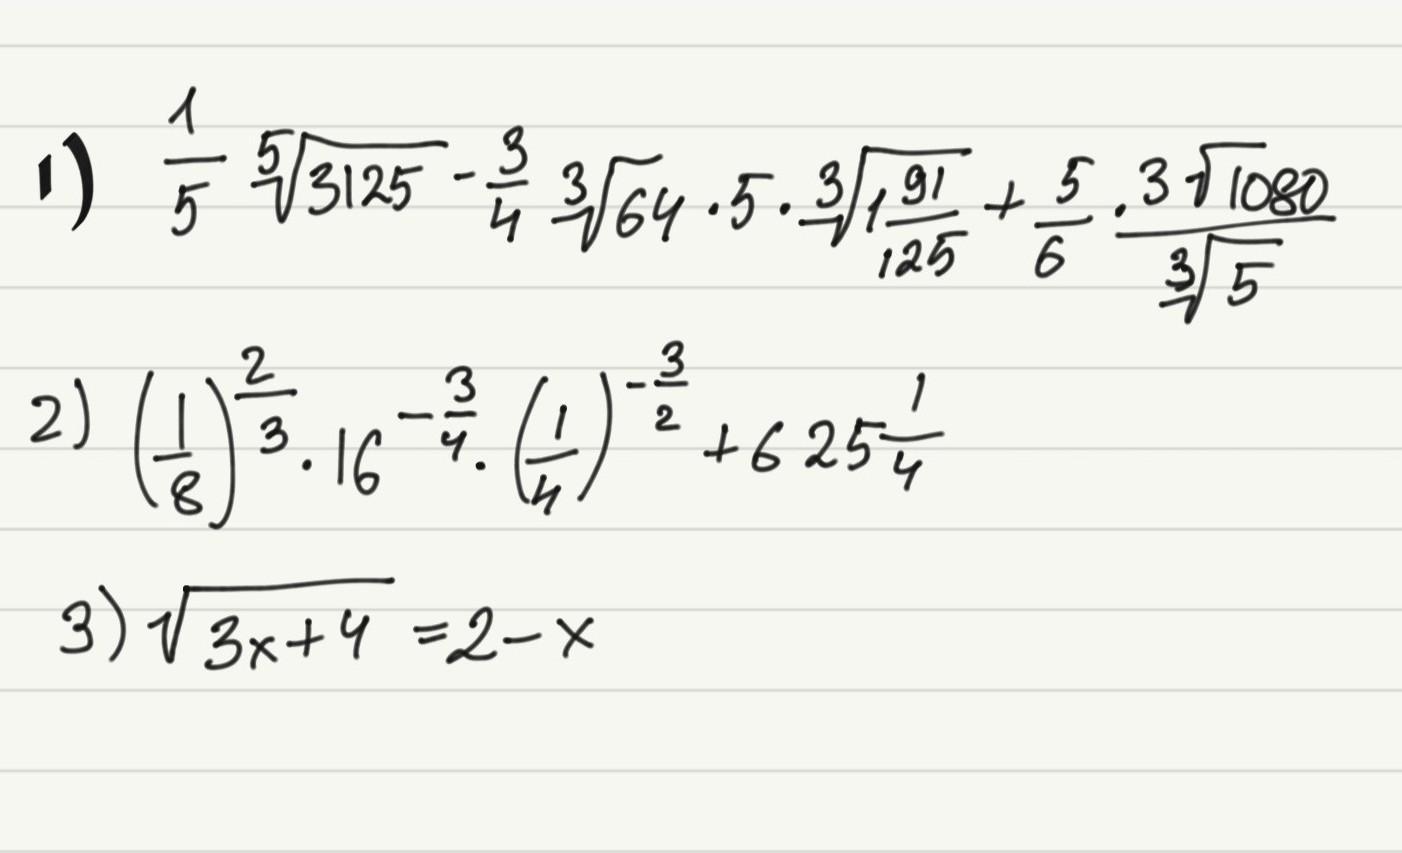 1) \frac{1}{5} \sqrt[5]{3125} - \frac{3}{4} \sqrt[3]{64} \cdot 5 \cdot \sqrt[3]{1\frac{91}{125}} + \frac{5}{6} \cdot \frac{3\sqrt{1080}}{\sqrt[3]{5}}
2) \left(\frac{1}{8}\right)^{\frac{2}{3}} \cdot 16^{-\frac{3}{4}} \cdot \left(\frac{1}{4}\right)^{-\frac{3}{2}} + 625^{\frac{1}{4}}
3) \sqrt{3x+4} = 2 - x